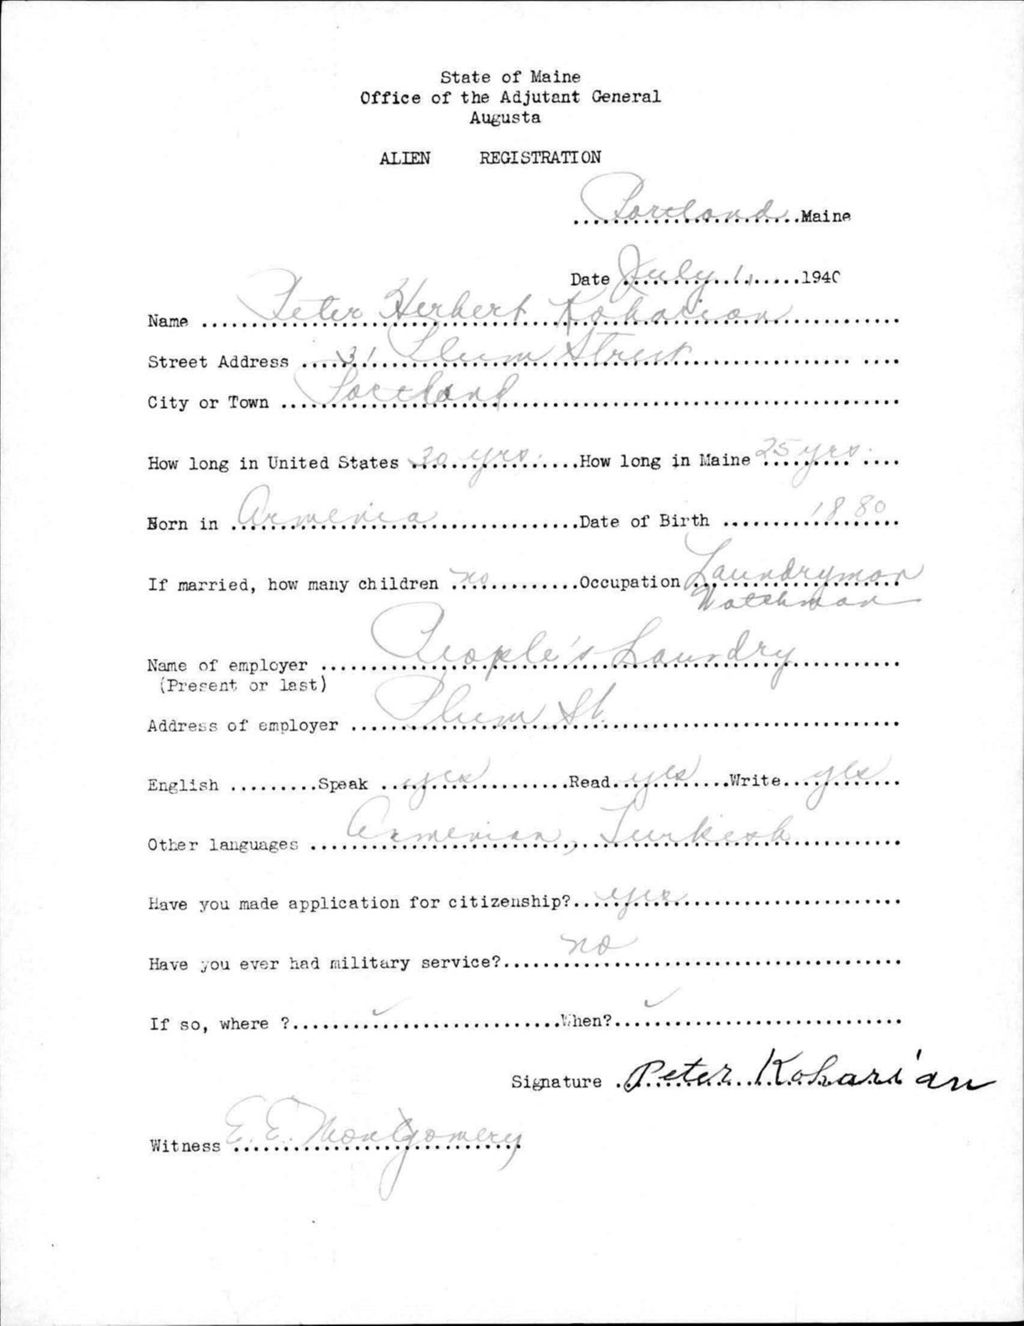 State of Maine
Office of the Adjutant General
Augusta
ALIEN REGISTRATION
Portland Maine
Date July 1, 1940
Name Peter Herbert Koharian
Street Address 31 Plum Street
City or Town Portland
How long in United States 30 yrs. How long in Maine 25 yrs.
Born in Armenia Date of Birth 1880
If married, how many children no Occupation Laundryman
Watchman
Name of employer People's Laundry
(Present or last)
Address of employer Plum St.
English Speak yes Read yes Write yes
Other languages Armenian, Turkish
Have you made application for citizenship? yes
Have you ever had military service? no
If so, where ? When?
Signature Peter Koharian
Witness E. E. Montgomery